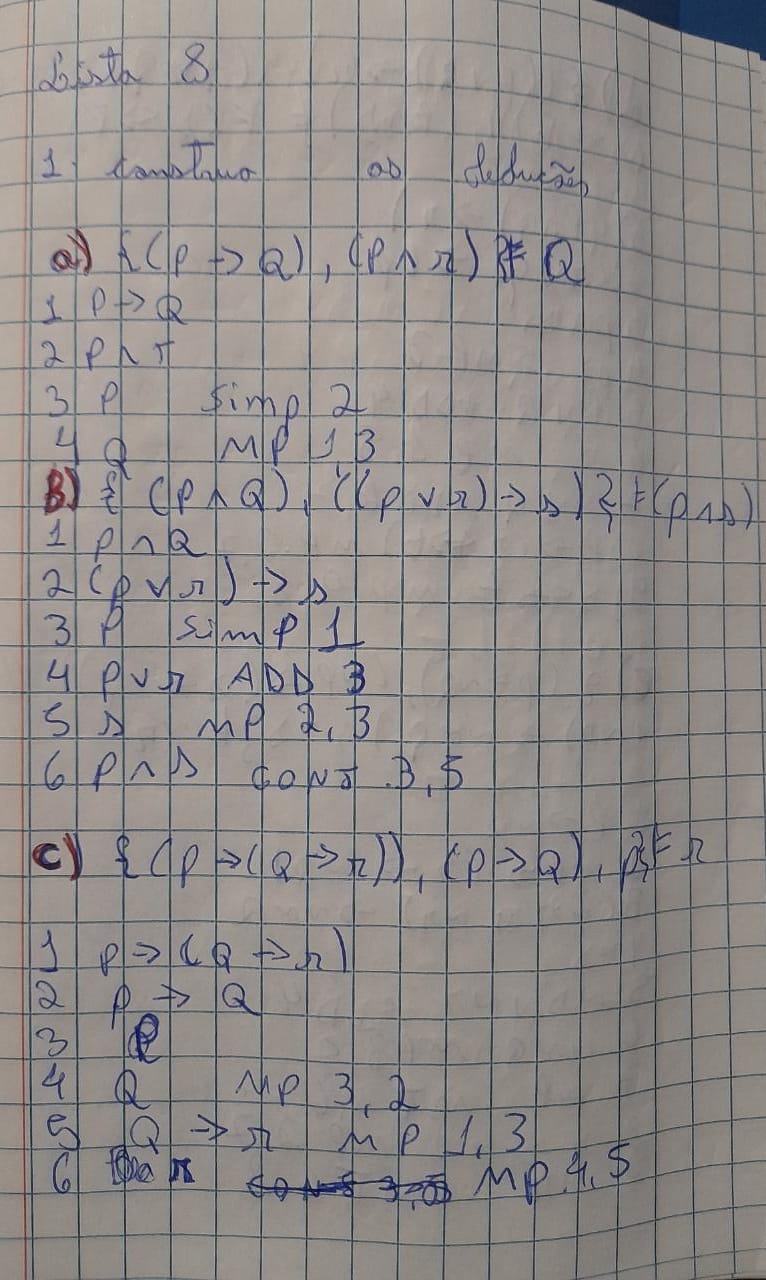 Lista 8
1. Construa as deduções
a) {(P → Q), (P ∧ r)} ⊨ Q
1 P → Q
2 P ∧ r
3 P Simp 2
4 Q MP 1,3
B) { (P ∧ Q), ((p ∨ r) → s) } ⊢ (p ∧ s)
1 p ∧ Q
2 (p ∨ r) → s
3 P Simp 1
4 p ∨ r ADD 3
5 s MP 2,3
6 P ∧ s CONJ 3,5
C) {(p → (Q → r)), (p → Q), p} ⊨ r
1 p → (Q → r)
2 p → Q
3 P
4 Q MP 3,2
5 Q → r MP 1,3
6 r MP 4,5